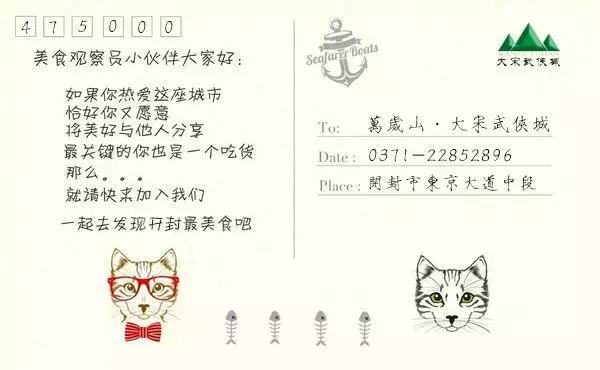 475000
美食观察员小伙伴大家好:
如果你热爱这座城市
恰好你又愿意
将美好与他人分享
最关键的你也是一个吃货
那么。。。
就请快来加入我们
一起去发现开封最美食吧
Seafarer Boats
大宋武侠城
To: 萬歲山·大宋武俠城
Date: 0371-22852896
Place: 開封市東京大道中段